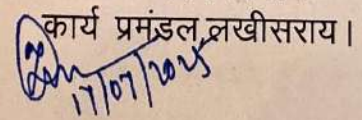 कार्य प्रमंडल, लखीसराय।
17/07/2025